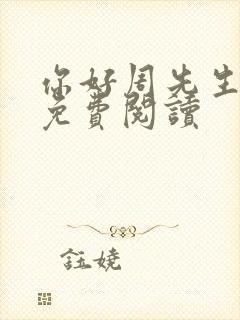 你好周先生
免費閱讀
鈺嬈